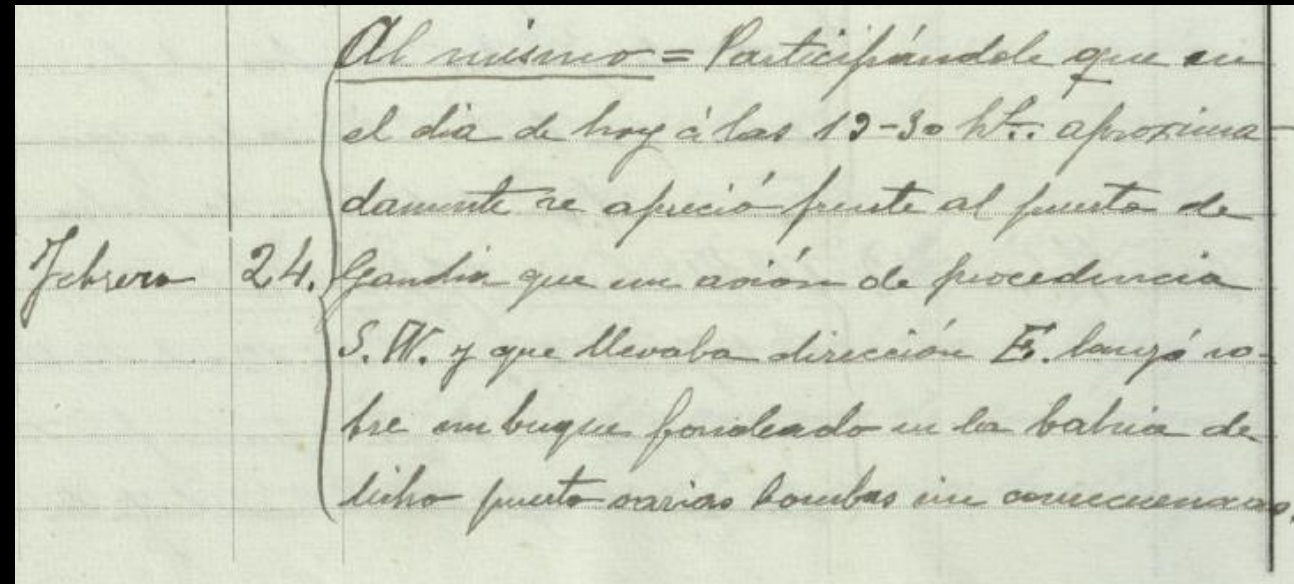 Al mismo = Participándole que en
el dia de hoy á las 13-30 hs. aproxima-
damente se apreció frente al puerto de
Febrero 24. Gandia que un avión de procedencia
S.W. y que llevaba dirección E. lanzó so-
bre un buque fondeado en la bahia de
dicho puerto varias bombas sin consecuencias.